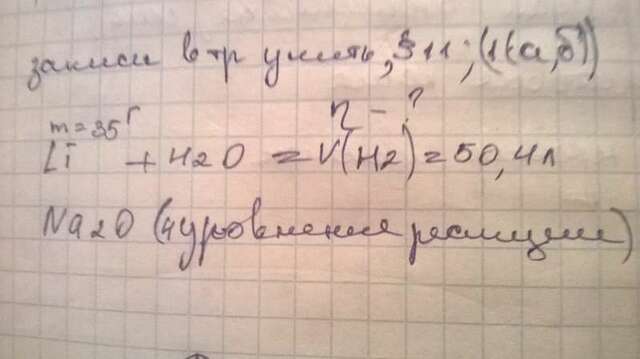 записи в тр учить, § 11; (1(а,б))
η - ?
m = 35г
Li + H2O = V(H2) = 50,4л
Na2O (4 уровнения реакции)